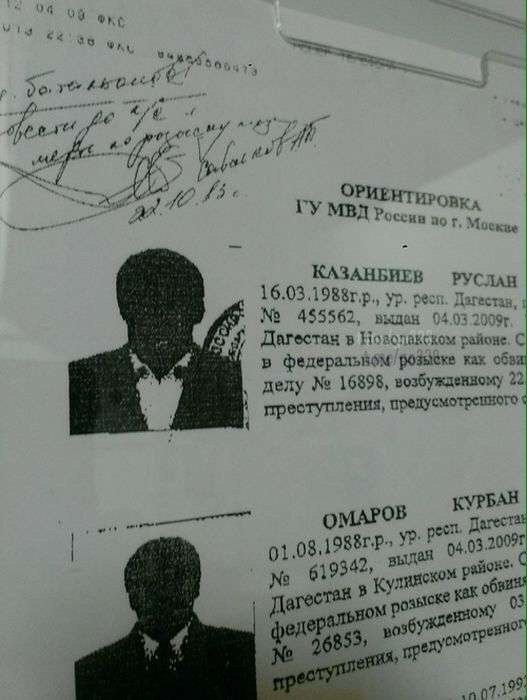 12 04 00 ФКС
22:38
г. батальонов!
до л/с и
меры по розыску
22.10.13г.
ОРИЕНТИРОВКА
ГУ МВД России по г. Москве
КАЗАНБИЕВ РУСЛАН
16.03.1988г.р., ур. респ. Дагестан,
№ 455562, выдан 04.03.2009г.
Дагестан в Новолакском районе. С
в федеральном розыске как обвин
делу № 16898, возбужденному 22
преступления, предусмотренного
ОМАРОВ КУРБАН
01.08.1988г.р., ур. респ. Дагестан
№ 619342, выдан 04.03.2009г
Дагестан в Кулинском районе. С
федеральном розыске как обвиня
№ 26853, возбужденному 03
преступления, предусмотренного
10.07.199